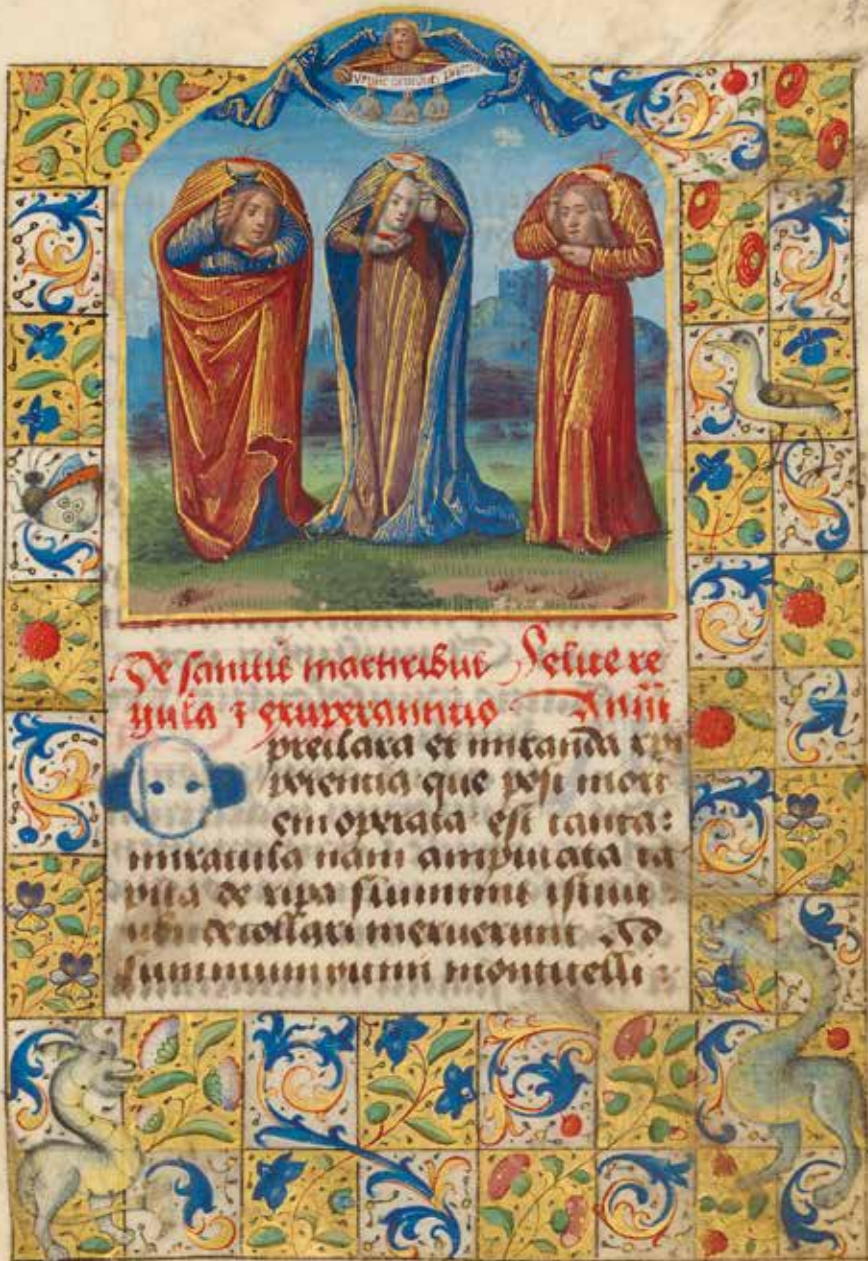 De sanctis martiribus Felice re
gula ⁊ exuperanntio Anth
O preclara et miranda
potencia que post mort
em operata est tanta:
miracula nam amputata ca
pita de ripa fluminis
ubi decollari meruerunt ad
summum montis